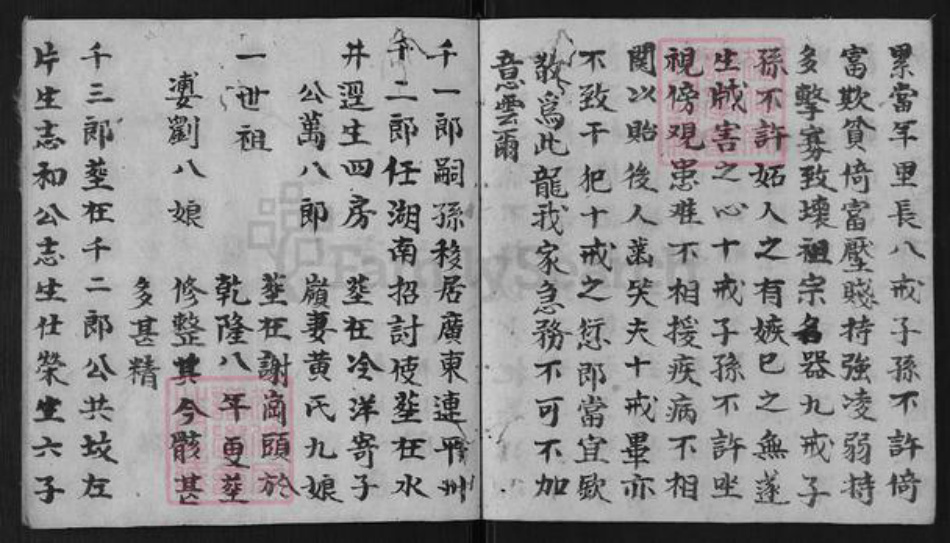 累當年里長八戒子孫不許倚
富欺貧倚富壓賤持強凌弱持
多擊寡致壞祖宗名器九戒子
孫不許妬人之有嫉巳之無遂
生戕害之心十戒子孫不許坐
視傍观患难不相援疾病不相
関以貽後人蚩笑夫十戒畢亦
不致干犯十戒之愆即當宜欽
敬為此龍我家急務不可不加
意雲爾
千一郎嗣孫移居廣東連平州
千二郎任湖南招討使塟在水
井逕生四房塟在冷洋寄子
公萬八郎嶺妻黄氏九娘
一世祖塟在謝崗頭於
乾隆八年更塟
婁劉八娘修整其今骸甚
多甚精
千三郎塟在千二郎公共坟左
片生志和公志生仕榮生六子
FamilySearch